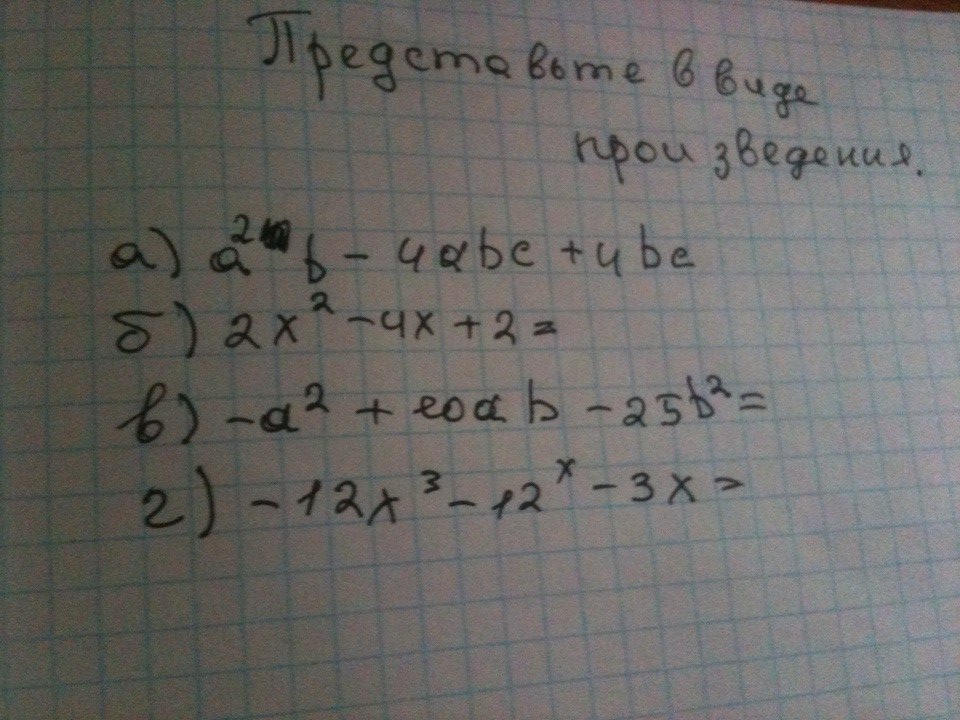 Представьте в виде
произведения.
а) a² b - 4abc + 4bc
б) 2x² - 4x + 2 =
в) -a² + 10ab - 25b² =
г) -12x³ - 12ˣ - 3x =